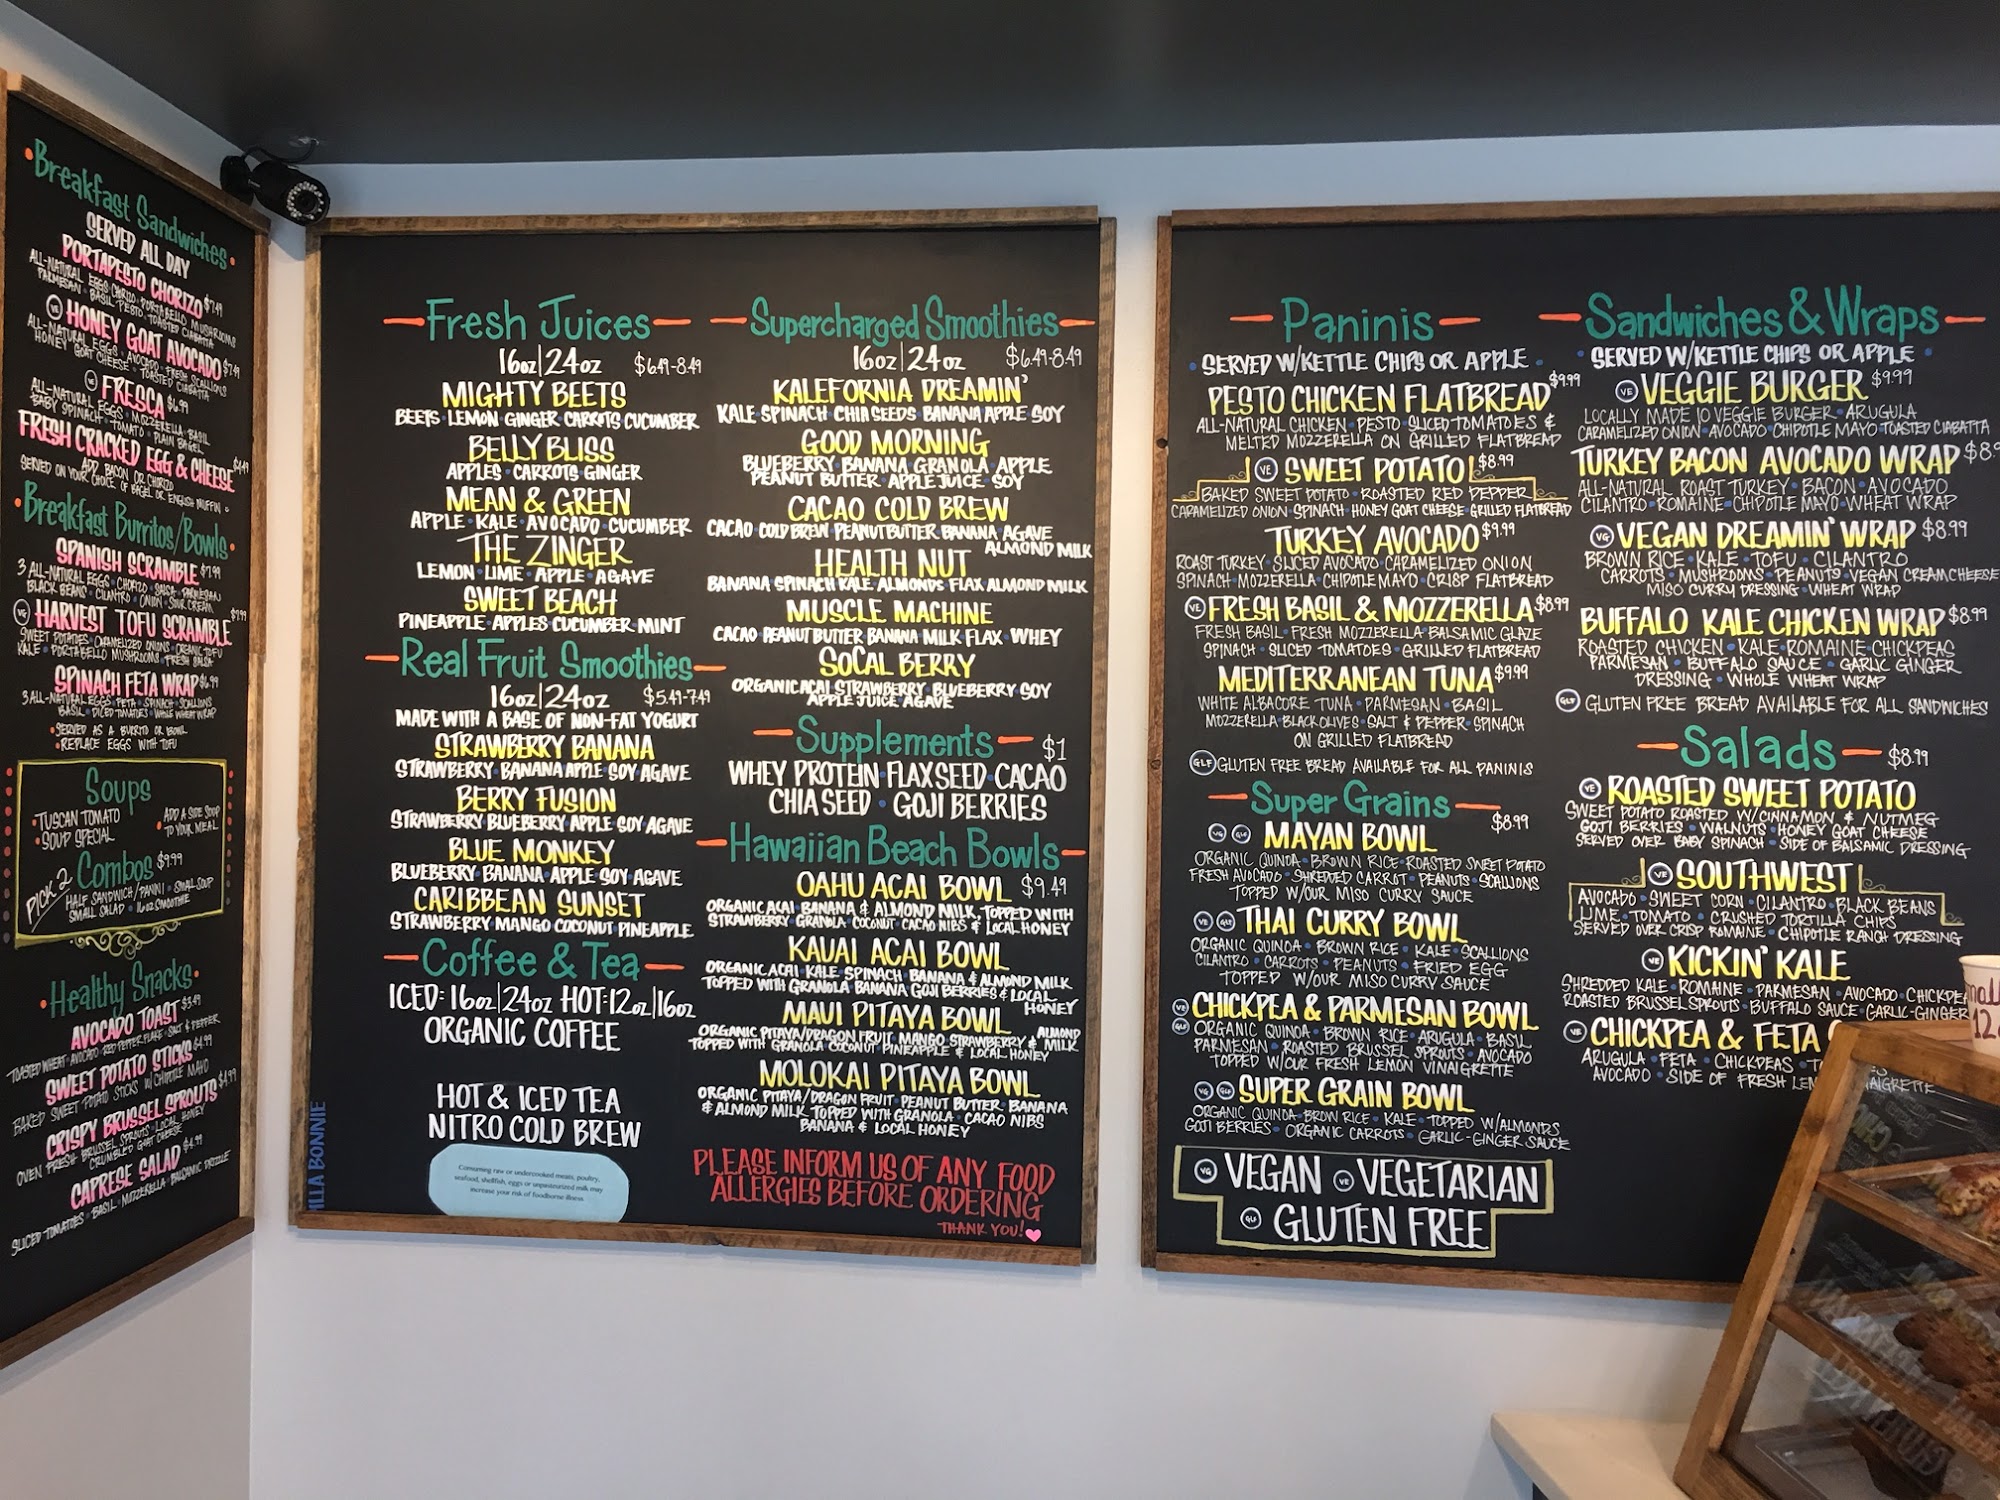 Breakfast Sandwiches
SERVED ALL DAY
PORTAPESTO CHORIZO $7.49
ALL-NATURAL EGGS · CHORIZO · PORTABELLO MUSHROOMS
PARMESAN · BASIL PESTO · TOASTED CIABATTA
VE HONEY GOAT AVOCADO $7.49
ALL-NATURAL EGGS · AVOCADO · FRESH SCALLIONS
HONEY GOAT CHEESE · TOASTED CIABATTA
VE FRESCA $6.99
ALL-NATURAL EGGS · MOZZERELLA · BASIL
BABY SPINACH · TOMATO · PLAIN BAGEL
FRESH CRACKED EGG & CHEESE $4.49
ADD BACON OR CHORIZO
SERVED ON YOUR CHOICE OF BAGEL OR ENGLISH MUFFIN
Breakfast Burritos/Bowls
SPANISH SCRAMBLE $7.99
3 ALL-NATURAL EGGS · CHORIZO · SALSA · PARMESAN
BLACK BEANS · CILANTRO · ONION · SOUR CREAM
VE HARVEST TOFU SCRAMBLE $7.99
SWEET POTATOES · CARAMELIZED ONIONS · ORGANIC TOFU
KALE · PORTABELLO MUSHROOMS · FRESH SALSA
SPINACH FETA WRAP $6.99
3 ALL-NATURAL EGGS · FETA · SPINACH · SCALLIONS
BASIL · DICED TOMATOES · WHOLE WHEAT WRAP
• SERVED AS A BURRITO OR BOWL
• REPLACE EGGS WITH TOFU
Soups
• TUSCAN TOMATO
• SOUP SPECIAL
• ADD A SIDE SOUP
TO YOUR MEAL
Combos $9.99
PICK 2
HALF SANDWICH/PANINI • SMALL SOUP
SMALL SALAD • 16oz SMOOTHIE
Healthy Snacks
AVOCADO TOAST $3.49
TOASTED WHEAT · AVOCADO · RED PEPPER FLAKE · SALT & PEPPER
SWEET POTATO STICKS $4.99
BAKED SWEET POTATO STICKS W/ CHIPOTLE MAYO
CRISPY BRUSSEL SPROUTS $4.99
OVEN FRESH BRUSSEL SPROUTS · LOCAL HONEY
CRUMBLED GOAT CHEESE
CAPRESE SALAD $4.99
SLICED TOMATOES · BASIL · MOZZERELLA · BALSAMIC DRIZZLE
Fresh Juices
16oz|24oz $6.49-8.49
MIGHTY BEETS
BEETS · LEMON · GINGER · CARROTS · CUCUMBER
BELLY BLISS
APPLES · CARROTS · GINGER
MEAN & GREEN
APPLE · KALE · AVOCADO · CUCUMBER
THE ZINGER
LEMON · LIME · APPLE · AGAVE
SWEET BEACH
PINEAPPLE · APPLES · CUCUMBER · MINT
Real Fruit Smoothies
16oz|24oz $5.49-7.49
MADE WITH A BASE OF NON-FAT YOGURT
STRAWBERRY BANANA
STRAWBERRY · BANANA · APPLE · SOY · AGAVE
BERRY FUSION
STRAWBERRY · BLUEBERRY · APPLE · SOY · AGAVE
BLUE MONKEY
BLUEBERRY · BANANA · APPLE · SOY · AGAVE
CARIBBEAN SUNSET
STRAWBERRY · MANGO · COCONUT · PINEAPPLE
Coffee & Tea
ICED: 16oz|24oz HOT: 12oz|16oz
ORGANIC COFFEE
HOT & ICED TEA
NITRO COLD BREW
Consuming raw or undercooked meats, poultry,
seafood, shellfish, eggs or unpasteurized milk may
increase your risk of foodborne illness.
ILLA BONNIE
Supercharged Smoothies
16oz|24oz $6.49-8.49
KALEFORNIA DREAMIN'
KALE · SPINACH · CHIA SEEDS · BANANA · APPLE · SOY
GOOD MORNING
BLUEBERRY · BANANA · GRANOLA · APPLE
PEANUT BUTTER · APPLE JUICE · SOY
CACAO COLD BREW
CACAO · COLD BREW · PEANUT BUTTER · BANANA · AGAVE
ALMOND MILK
HEALTH NUT
BANANA · SPINACH · KALE · ALMONDS · FLAX · ALMOND MILK
MUSCLE MACHINE
CACAO · PEANUT BUTTER · BANANA · MILK · FLAX · WHEY
SOCAL BERRY
ORGANIC ACAI · STRAWBERRY · BLUEBERRY · SOY
APPLE JUICE · AGAVE
Supplements $1
WHEY PROTEIN · FLAXSEED · CACAO
CHIA SEED · GOJI BERRIES
Hawaiian Beach Bowls
OAHU ACAI BOWL $9.49
ORGANIC ACAI · BANANA & ALMOND MILK, TOPPED WITH
STRAWBERRY · GRANOLA · COCONUT · CACAO NIBS & LOCAL HONEY
KAUAI ACAI BOWL
ORGANIC ACAI · KALE · SPINACH · BANANA & ALMOND MILK
TOPPED WITH GRANOLA · BANANA · GOJI BERRIES & LOCAL
HONEY
MAUI PITAYA BOWL
ORGANIC PITAYA/DRAGON FRUIT · MANGO · STRAWBERRY & ALMOND MILK
TOPPED WITH GRANOLA · COCONUT · PINEAPPLE & LOCAL HONEY
MOLOKAI PITAYA BOWL
ORGANIC PITAYA/DRAGON FRUIT · PEANUT BUTTER · BANANA
& ALMOND MILK, TOPPED WITH GRANOLA · CACAO NIBS
BANANA & LOCAL HONEY
PLEASE INFORM US OF ANY FOOD
ALLERGIES BEFORE ORDERING
THANK YOU!
Paninis
· SERVED W/KETTLE CHIPS OR APPLE ·
PESTO CHICKEN FLATBREAD $9.99
ALL-NATURAL CHICKEN · PESTO · SLICED TOMATOES &
MELTED MOZZERELLA ON GRILLED FLATBREAD
VE SWEET POTATO $8.99
BAKED SWEET POTATO · ROASTED RED PEPPER
CARAMELIZED ONION · SPINACH · HONEY GOAT CHEESE · GRILLED FLATBREAD
TURKEY AVOCADO $9.99
ROAST TURKEY · SLICED AVOCADO · CARAMELIZED ONION
SPINACH · MOZZERELLA · CHIPOTLE MAYO · CRISP FLATBREAD
VE FRESH BASIL & MOZZERELLA $8.99
FRESH BASIL · FRESH MOZZERELLA · BALSAMIC GLAZE
SPINACH · SLICED TOMATOES · GRILLED FLATBREAD
MEDITERRANEAN TUNA $9.99
WHITE ALBACORE TUNA · PARMESAN · BASIL
MOZZERELLA · BLACK OLIVES · SALT & PEPPER · SPINACH
ON GRILLED FLATBREAD
GLF GLUTEN FREE BREAD AVAILABLE FOR ALL PANINIS
Super Grains $8.99
VG GLF MAYAN BOWL
ORGANIC QUINOA · BROWN RICE · ROASTED SWEET POTATO
FRESH AVOCADO · SHREDDED CARROT · PEANUTS · SCALLIONS
TOPPED W/OUR MISO CURRY SAUCE
VE GLF THAI CURRY BOWL
ORGANIC QUINOA · BROWN RICE · KALE · SCALLIONS
CILANTRO · CARROTS · PEANUTS · FRIED EGG
TOPPED W/OUR MISO CURRY SAUCE
VE GLF CHICKPEA & PARMESAN BOWL
ORGANIC QUINOA · BROWN RICE · ARUGULA · BASIL
PARMESAN · ROASTED BRUSSEL SPROUTS · AVOCADO
TOPPED W/OUR FRESH LEMON VINAIGRETTE
VG GLF SUPER GRAIN BOWL
ORGANIC QUINOA · BROWN RICE · KALE · TOPPED W/ALMONDS
GOJI BERRIES · ORGANIC CARROTS · GARLIC-GINGER SAUCE
VG VEGAN VE VEGETARIAN
GLF GLUTEN FREE
Sandwiches & Wraps
· SERVED W/KETTLE CHIPS OR APPLE ·
VE VEGGIE BURGER $9.99
LOCALLY MADE IO VEGGIE BURGER · ARUGULA
CARAMELIZED ONION · AVOCADO · CHIPOTLE MAYO · TOASTED CIABATTA
TURKEY BACON AVOCADO WRAP $8.9
ALL-NATURAL ROAST TURKEY · BACON · AVOCADO
CILANTRO · ROMAINE · CHIPOTLE MAYO · WHEAT WRAP
VG VEGAN DREAMIN' WRAP $8.99
BROWN RICE · KALE · TOFU · CILANTRO
CARROTS · MUSHROOMS · PEANUTS · VEGAN CREAM CHEESE
MISO CURRY DRESSING · WHEAT WRAP
BUFFALO KALE CHICKEN WRAP $8.99
ROASTED CHICKEN · KALE · ROMAINE · CHICKPEAS
PARMESAN · BUFFALO SAUCE · GARLIC GINGER
DRESSING · WHOLE WHEAT WRAP
GLF GLUTEN FREE BREAD AVAILABLE FOR ALL SANDWICHES
Salads $8.99
VE ROASTED SWEET POTATO
SWEET POTATO ROASTED W/CINNAMON & NUTMEG
GOJI BERRIES · WALNUTS · HONEY GOAT CHEESE
SERVED OVER BABY SPINACH · SIDE OF BALSAMIC DRESSING
VE SOUTHWEST
AVOCADO · SWEET CORN · CILANTRO · BLACK BEANS
LIME · TOMATO · CRUSHED TORTILLA CHIPS
SERVED OVER CRISP ROMAINE · CHIPOTLE RANCH DRESSING
VE KICKIN' KALE
SHREDDED KALE · ROMAINE · PARMESAN · AVOCADO · CHICKPEA
ROASTED BRUSSEL SPROUTS · BUFFALO SAUCE · GARLIC-GINGER
VE CHICKPEA & FETA
ARUGULA · FETA · CHICKPEAS
AVOCADO · SIDE OF FRESH LEM AIGRETTE